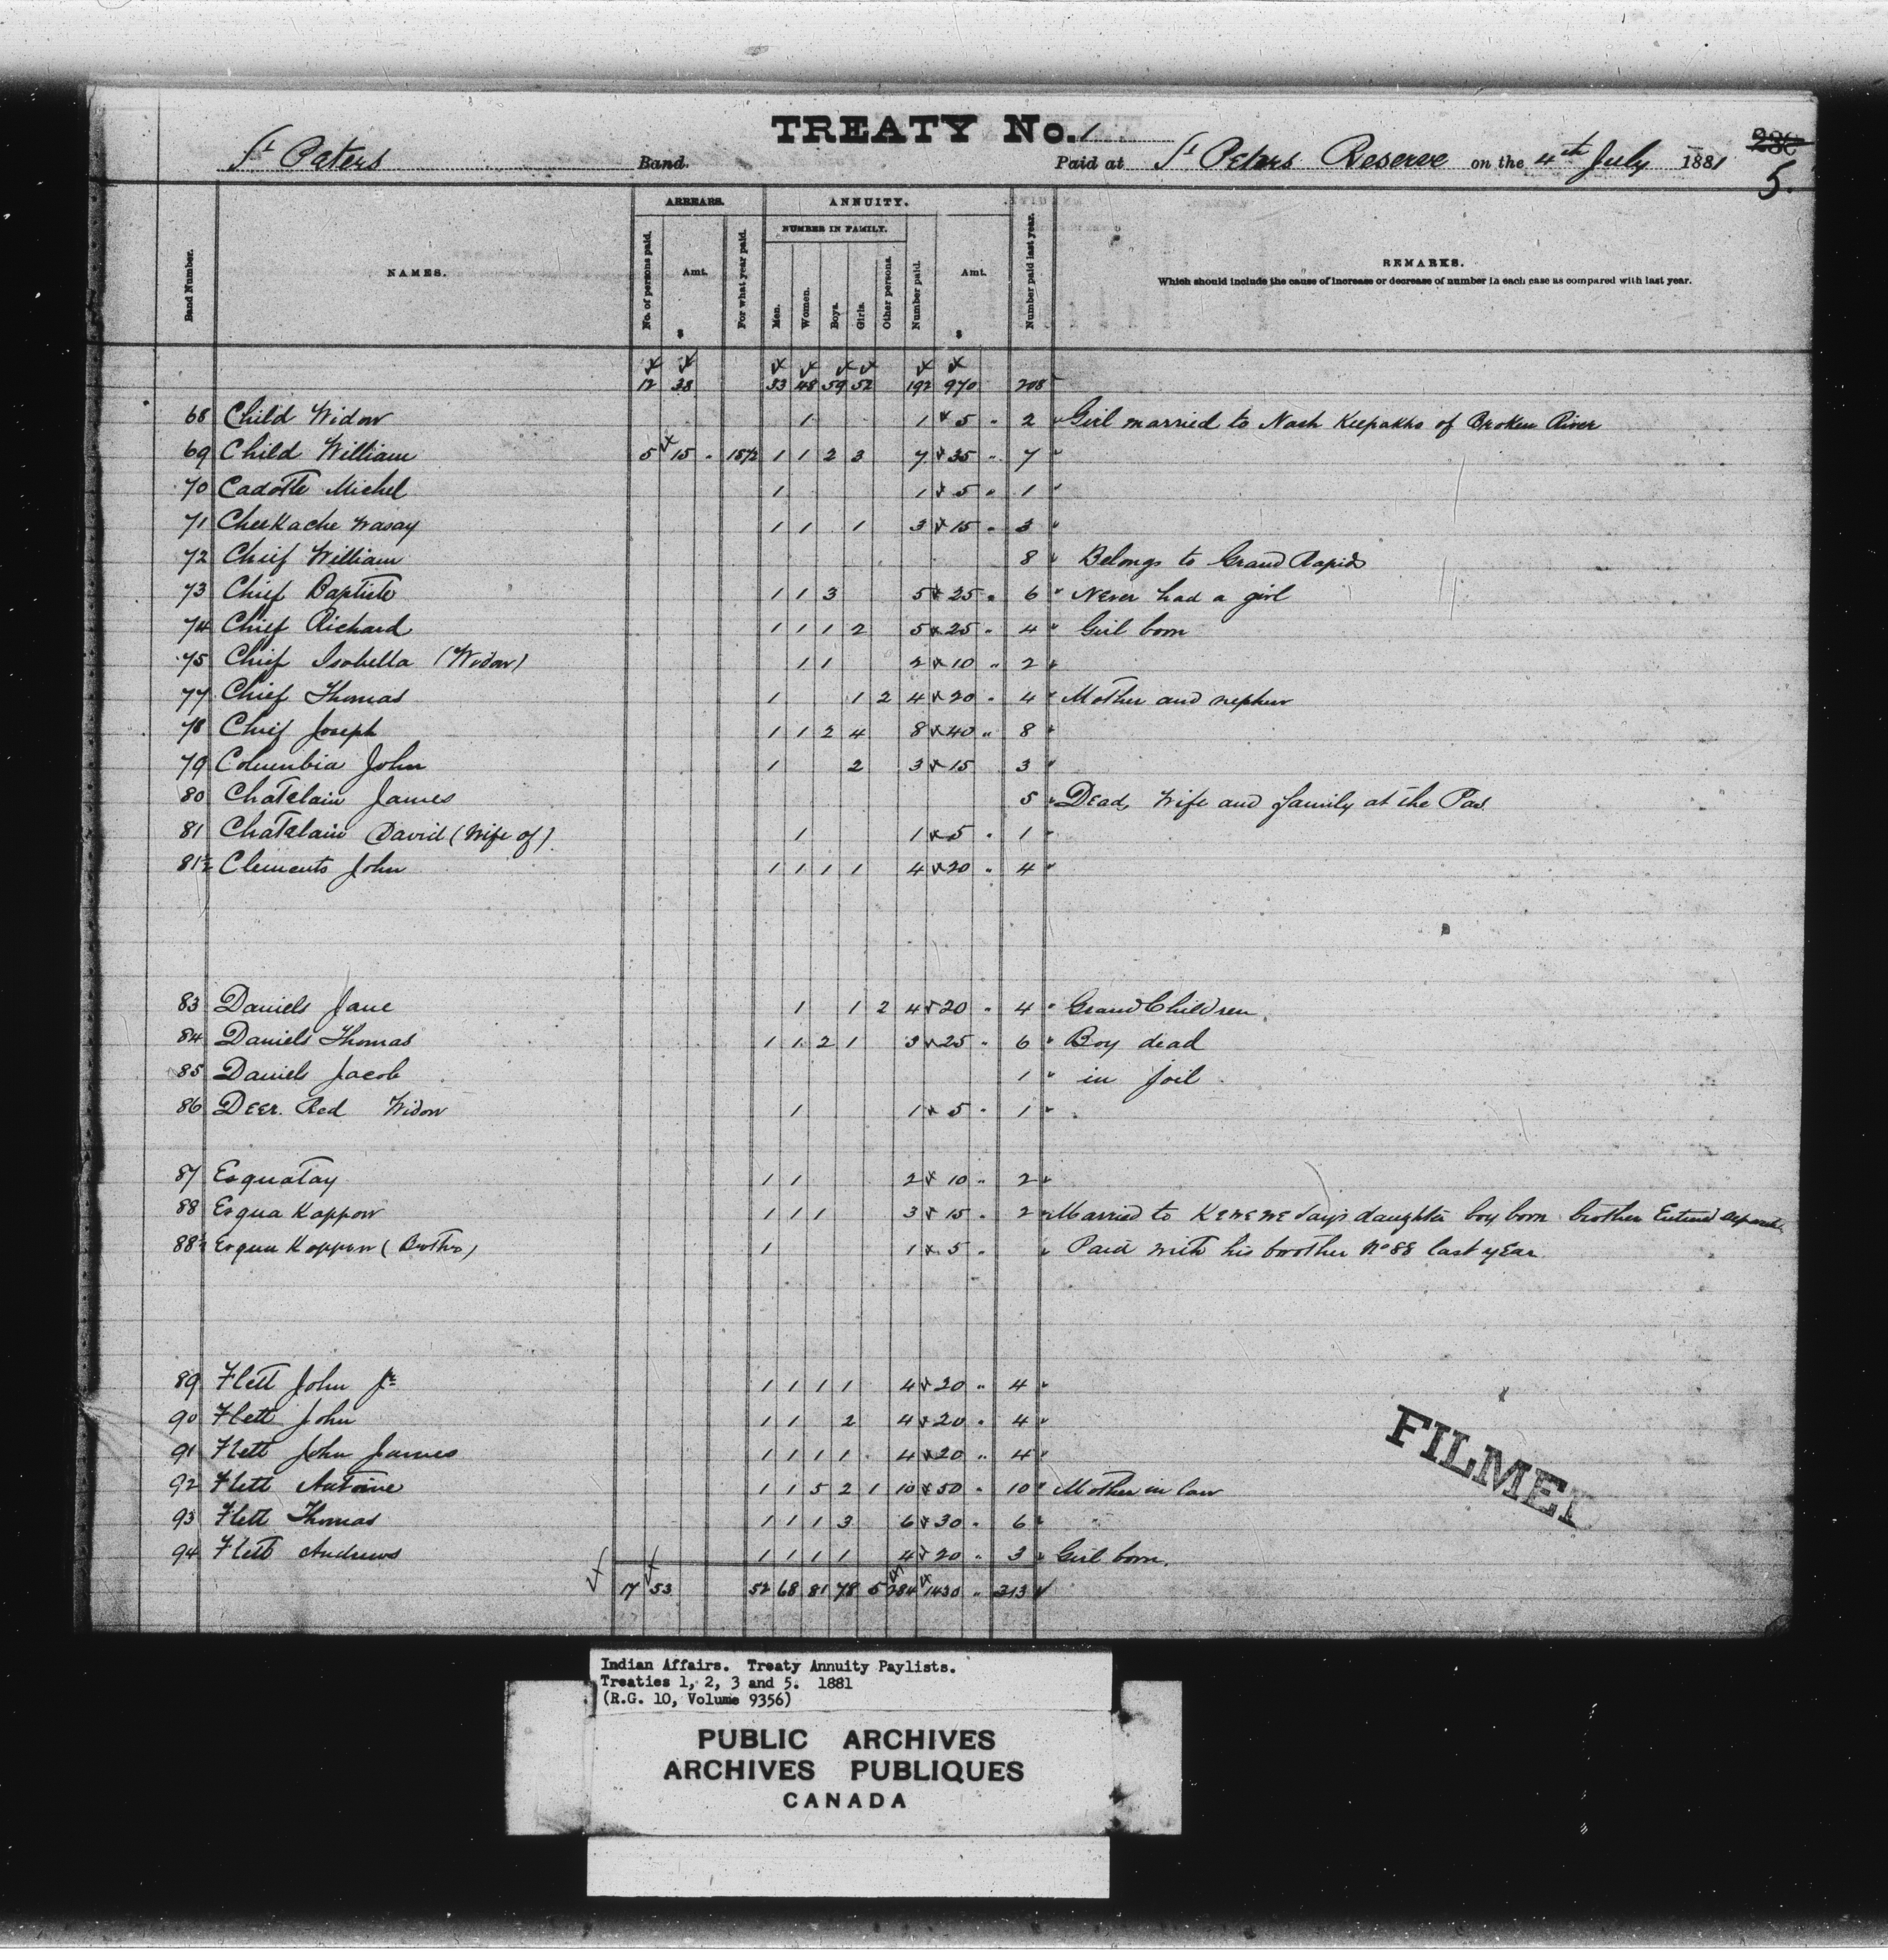 TREATY No. 1
St Peters Band. Paid at St Peters Reserve on the 4th July 1881
5.
ARREARS. ANNUITY.
NUMBER IN FAMILY.
Band Number. NAMES. No. of persons paid. Amt. $ For what year paid. Men. Women. Boys. Girls. Other persons. Number paid. Amt. $ Number paid last year. REMARKS.
Which should include the cause of increase or decrease of number in each case as compared with last year.
12 38 33 48 59 52 192 970 208
68 Child Widow 1 1 5 " 2 Girl married to Nash of Broken River
69 Child William 5 15 " 1872 1 1 2 3 7 35 " 7
70 Cadotte Michel 1 1 5 " 1
71 Cheekache Wasay 1 1 1 3 15 " 3
72 Chief William 8 Belongs to Grand Rapids
73 Chief Baptiste 1 1 3 5 25 " 6 Never had a girl
74 Chief Richard 1 1 1 2 5 25 " 4 Girl born
75 Chief Isabella (Widow) 1 1 2 10 " 2
77 Chief Thomas 1 1 2 4 20 " 4 Mother and nephew
78 Chief Joseph 1 1 2 4 8 40 " 8
79 Columbia John 1 2 3 15 3
80 Chatelain James 5 Dead, Wife and family at the Pas
81 Chatelain David (Wife of) 1 1 5 " 1
81½ Clements John 1 1 1 1 4 20 " 4
83 Daniels Jane 1 1 2 4 20 " 4 Grand Children.
84 Daniels Thomas 1 1 2 1 5 25 " 6 Boy dead
85 Daniels Jacob 1 in Joil
86 Deer Red Widow 1 1 5 " 1
87 Esquatay 1 1 2 10 " 2
88 Esqua Kappow 1 1 1 3 15 " 2 Married to daughter boy born brother Entered
88½ Esqua Kappow (Brother) 1 1 5 " Paid with his brother No 88 last year
89 Flett John Jr 1 1 1 1 4 20 " 4
90 Flett John 1 1 2 4 20 " 4
91 Flett John James 1 1 1 1 4 20 " 4
92 Flett Antoine 1 1 5 2 1 10 50 " 10 Mother in law
93 Flett Thomas 1 1 1 3 6 30 " 6
94 Flett Andrews 1 1 1 1 4 20 " 3 Girl born.
17 53 52 68 81 78 5 284 1430 " 313
FILMED
Indian Affairs. Treaty Annuity Paylists.
Treaties 1, 2, 3 and 5. 1881
(R.G. 10, Volume 9356)
PUBLIC ARCHIVES
ARCHIVES PUBLIQUES
CANADA